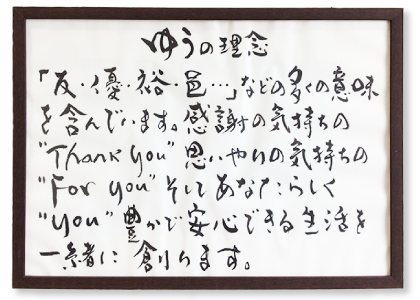 ゆうの理念
「友・優・裕・邑…」などの多くの意味
を含んでいます。感謝の気持ちの
"Thank you" 思いやりの気持ちの
"For you" そしてあなたらしく
"You" 豊かで安心できる生活を
一緒に創ります。